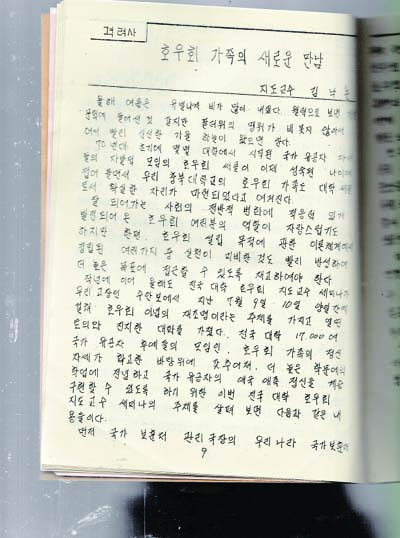 격려사
호우회 가족의 새로운 만남
지도교수 김
올해 여름은 유별나게 비가 많이 내렸다. 절기으로 보면 가을
문턱에 들어선 것 같지만 불더위의 맹위가 비롯지 않아
어서 빨리 신선한 가을 하늘이 왔으면 한다.
70년대 초기에 몇몇 대학에서 시작된 국가 유공자 자녀
들의 자발적 모임의 호우회 써클이 이제 성숙된 나이에
접어 들면서 우리 충북대학교의 호우회 가족도 대학 써클
로서 확실한 자리가 마련되었다고 여겨진다.
잘 되어가는 사회의 전반적 변화에 적응력 있게
발전되어 온 호우회 여러분의 역할이 자랑스럽기도
하지만 한편, 호우회 설립 목적에 관한 이론체계에
정립된 여러가지 중 실천이 미비한 것도 빨리 반성하여
더 높은 목표에 접근할 수 있도록 재고하여야 한다
작년에 이어 올해도 전국 대학 호우회 지도교수 세미나가
우리 고장인 수안보에서 지난 7월 9일, 10일 양일간에
걸쳐 호우회 이념의 재조명이라는 주제를 가지고 열띤
토의와 진지한 대화를 가졌다. 전국 대학 17,000여
국가 유공자 후예들의 모임인, 호우회 가족의 정신
자세가 확고한 바탕위에 갖추어져, 더 높은 학문에의
학업에 전념하고 국가 유공자의 애국 애족 정신을 계승
구현할 수 있도록 하기 위한 이번 전국 대학 호우회
지도교수 세미나의 주제를 살펴 보면 다음과 같은 내
용들이다.
먼저 국가 보훈처 관리국장의 우리나라 국가보훈
9